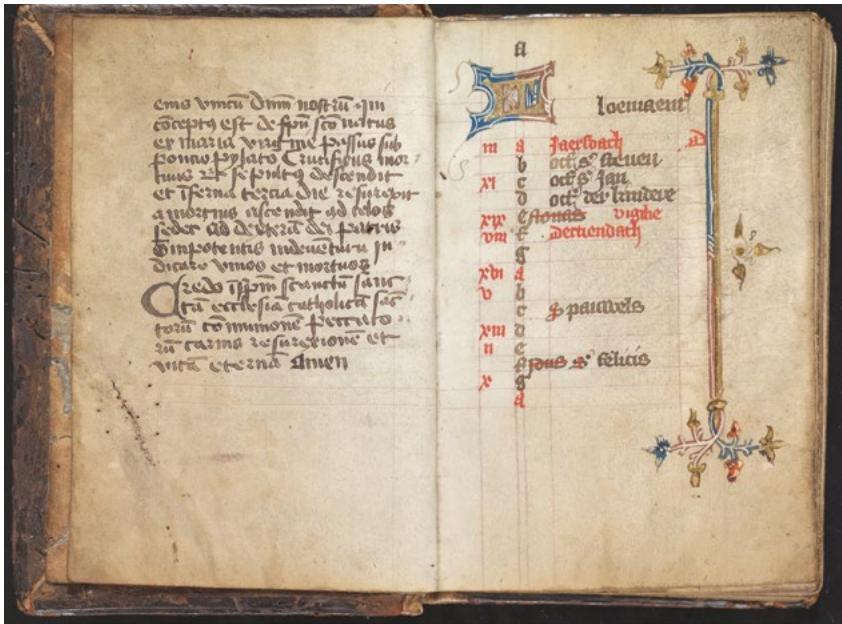 eius vnicū dnm̄ nostrū qui
cōceptꝰ est de spū scō natus
ex maria virgine passus sub
poncio pylato Crucifixus mor
tuus et sepultꝰ descendit
et īferna tercia die resurexit
a mortuis ascendit ad celos
sedet ad dexterā dei patris
Omipotentis indeuēturꝰ iu
dicare viuos et mortuos
Credo ī spm̄ sanctum sanc
tā ecclesiā catholicā sāc
torū cōmunionē peccato
rū carnis resurexionē et
vitā eternā Amen
a
loemaent
iii a Jaersdach
b octͣ sͨ steuen
xi c octͣ sͨ Jan
d octͣ der kindere
xix e nonas vigilie
viii f dertiendach
g
xvi a
v b
c S pauwels
xiii d
ii e
f ydus sͨ felicis
x g
a